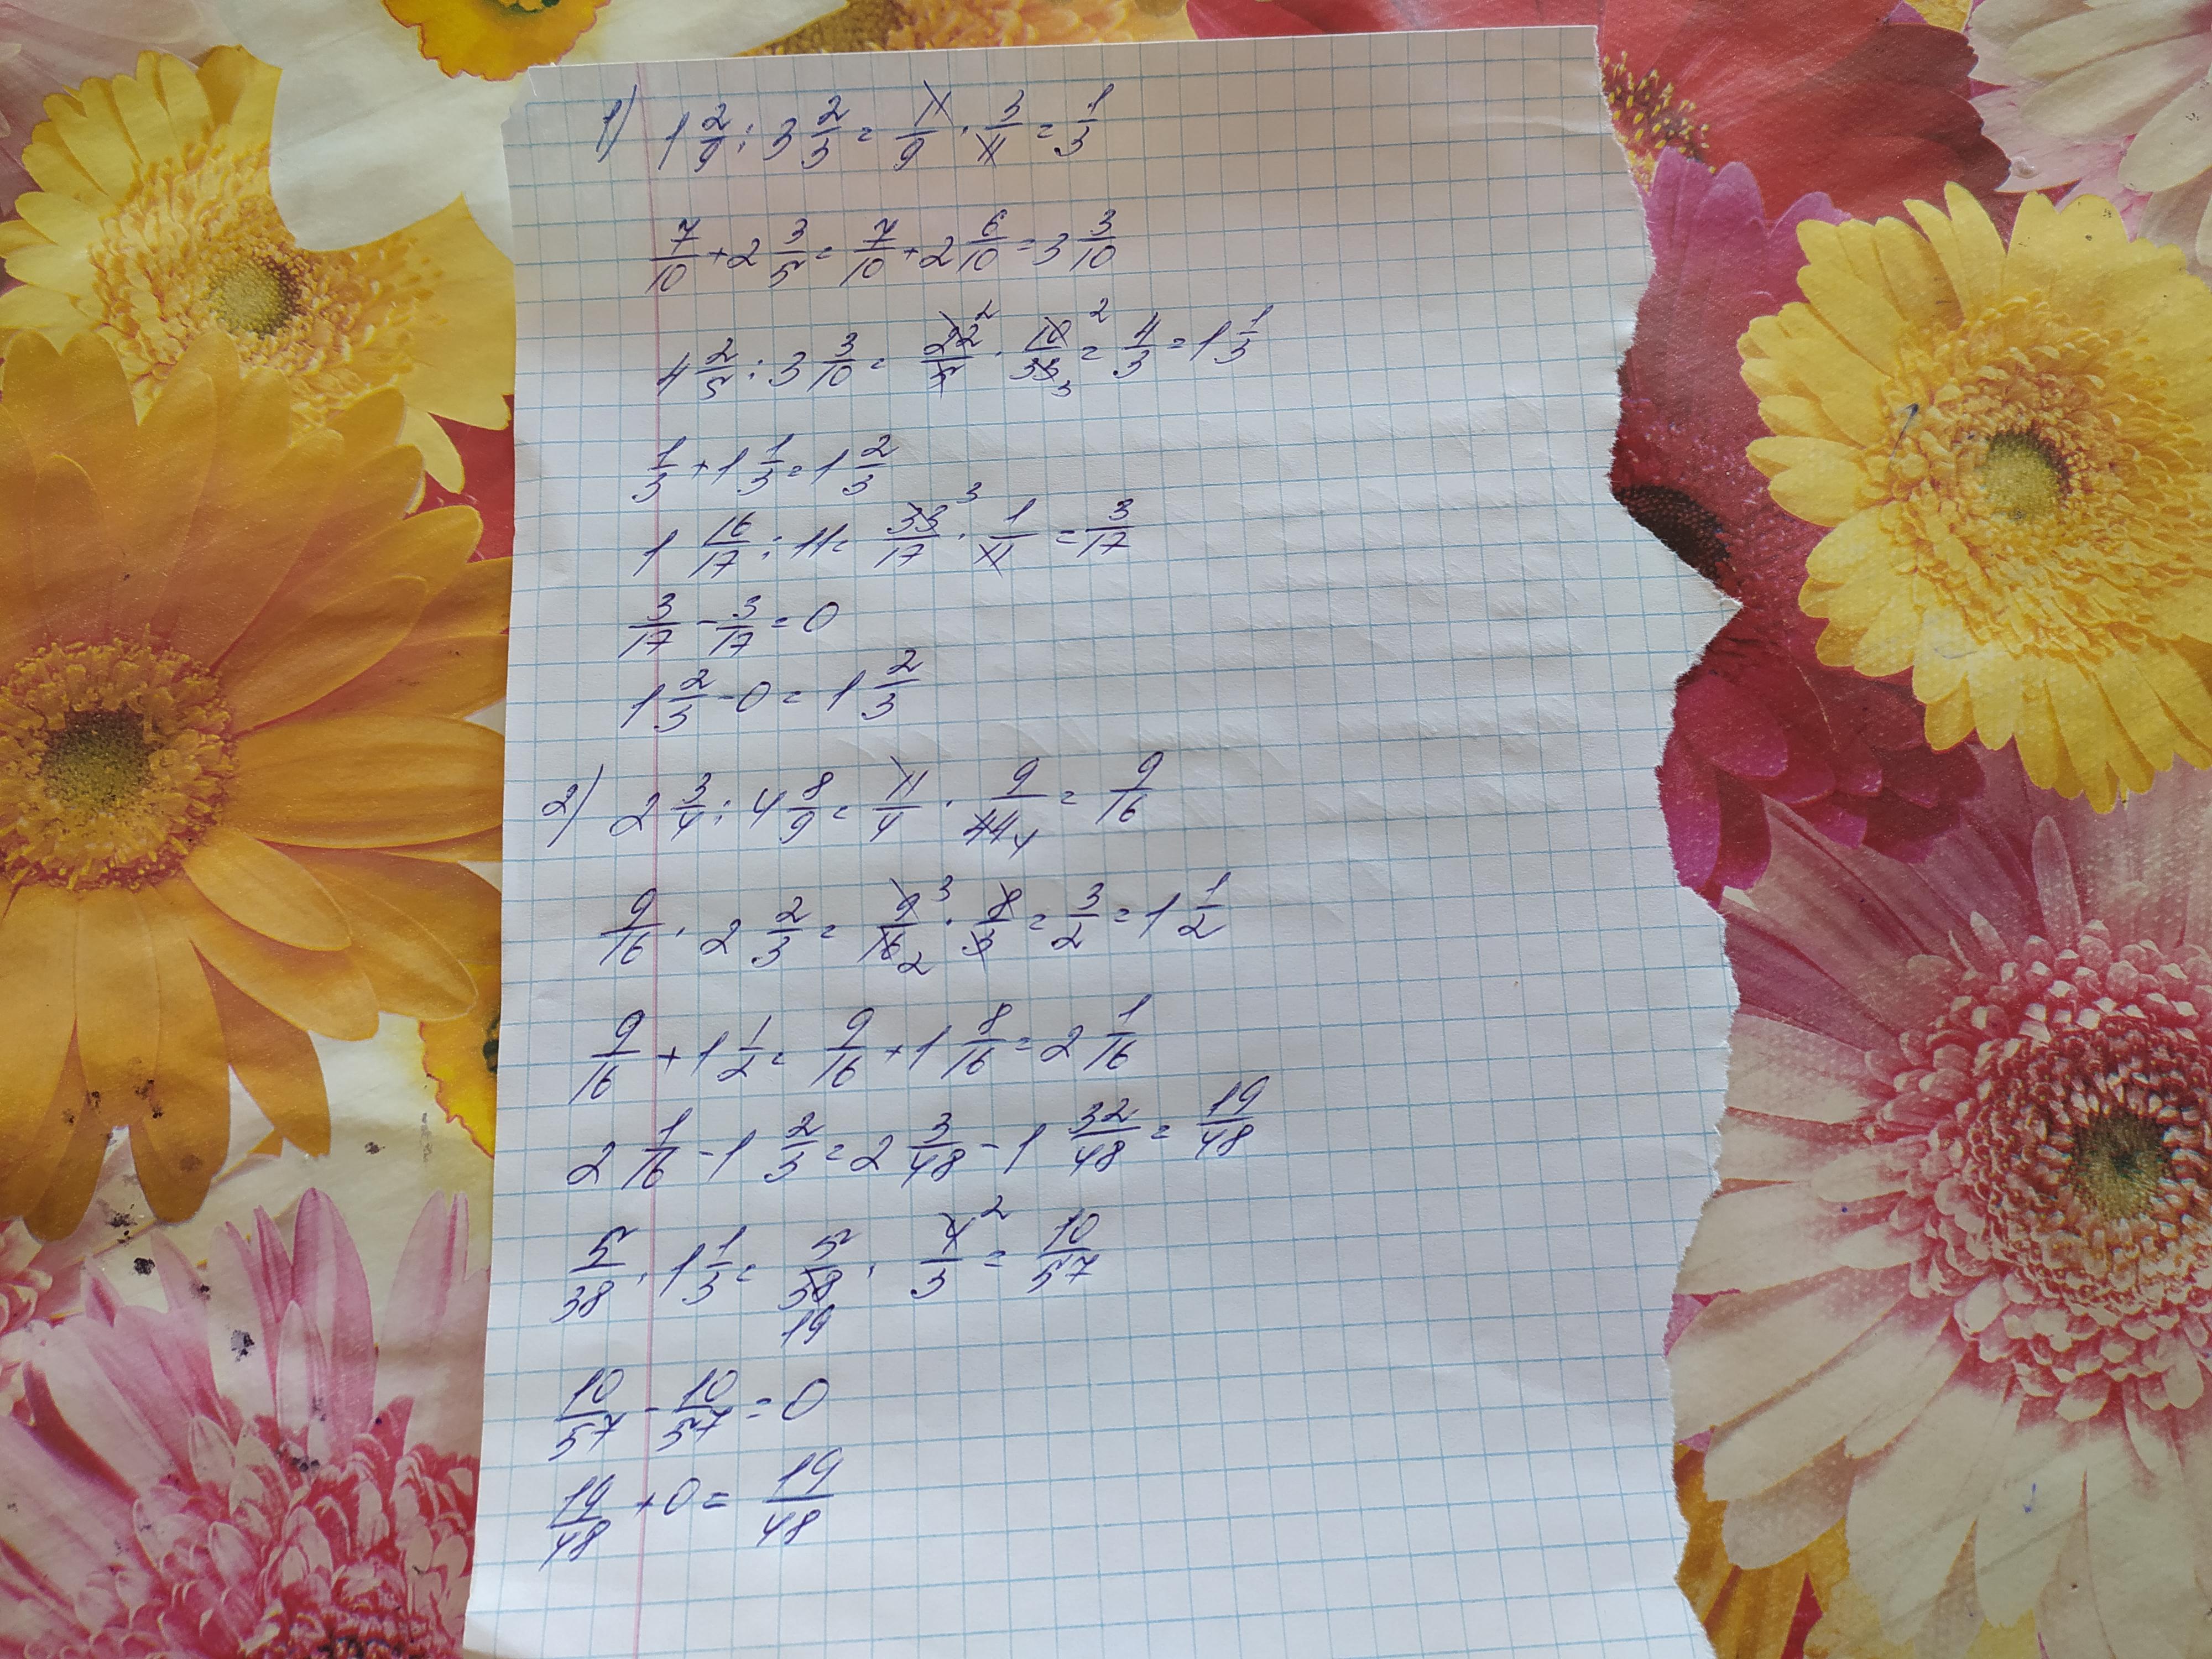 1) 1 2/9 : 3 2/3 = 11/9 · 3/11 = 1/3
7/10 + 2 3/5 = 7/10 + 2 6/10 = 3 3/10
4 2/5 : 3 3/10 = 22/5 2 · 10/33 2 3 = 4/3 = 1 1/3
1/3 + 1 1/3 = 1 2/3
1 16/17 : 11 = 33/17 3 · 1/11 = 3/17
3/17 - 3/17 = 0
1 2/3 - 0 = 1 2/3
2) 2 3/4 : 4 8/9 = 11/4 · 9/44 4 = 9/16
9/16 · 2 2/3 = 9/16 3 2 · 8/3 = 3/2 = 1 1/2
9/16 + 1 1/2 = 9/16 + 1 8/16 = 2 1/16
2 1/16 - 1 2/3 = 2 3/48 - 1 32/48 = 19/48
5/38 · 1 1/3 = 5/38 19 · 4/3 2 = 10/57
10/57 - 10/57 = 0
19/48 + 0 = 19/48